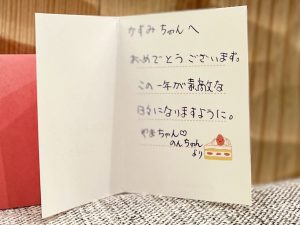 かすみちゃんへ
おめでとうございます。
この一年が素敵な
日々になりますように。
やまちゃん♡
のんちゃん
より